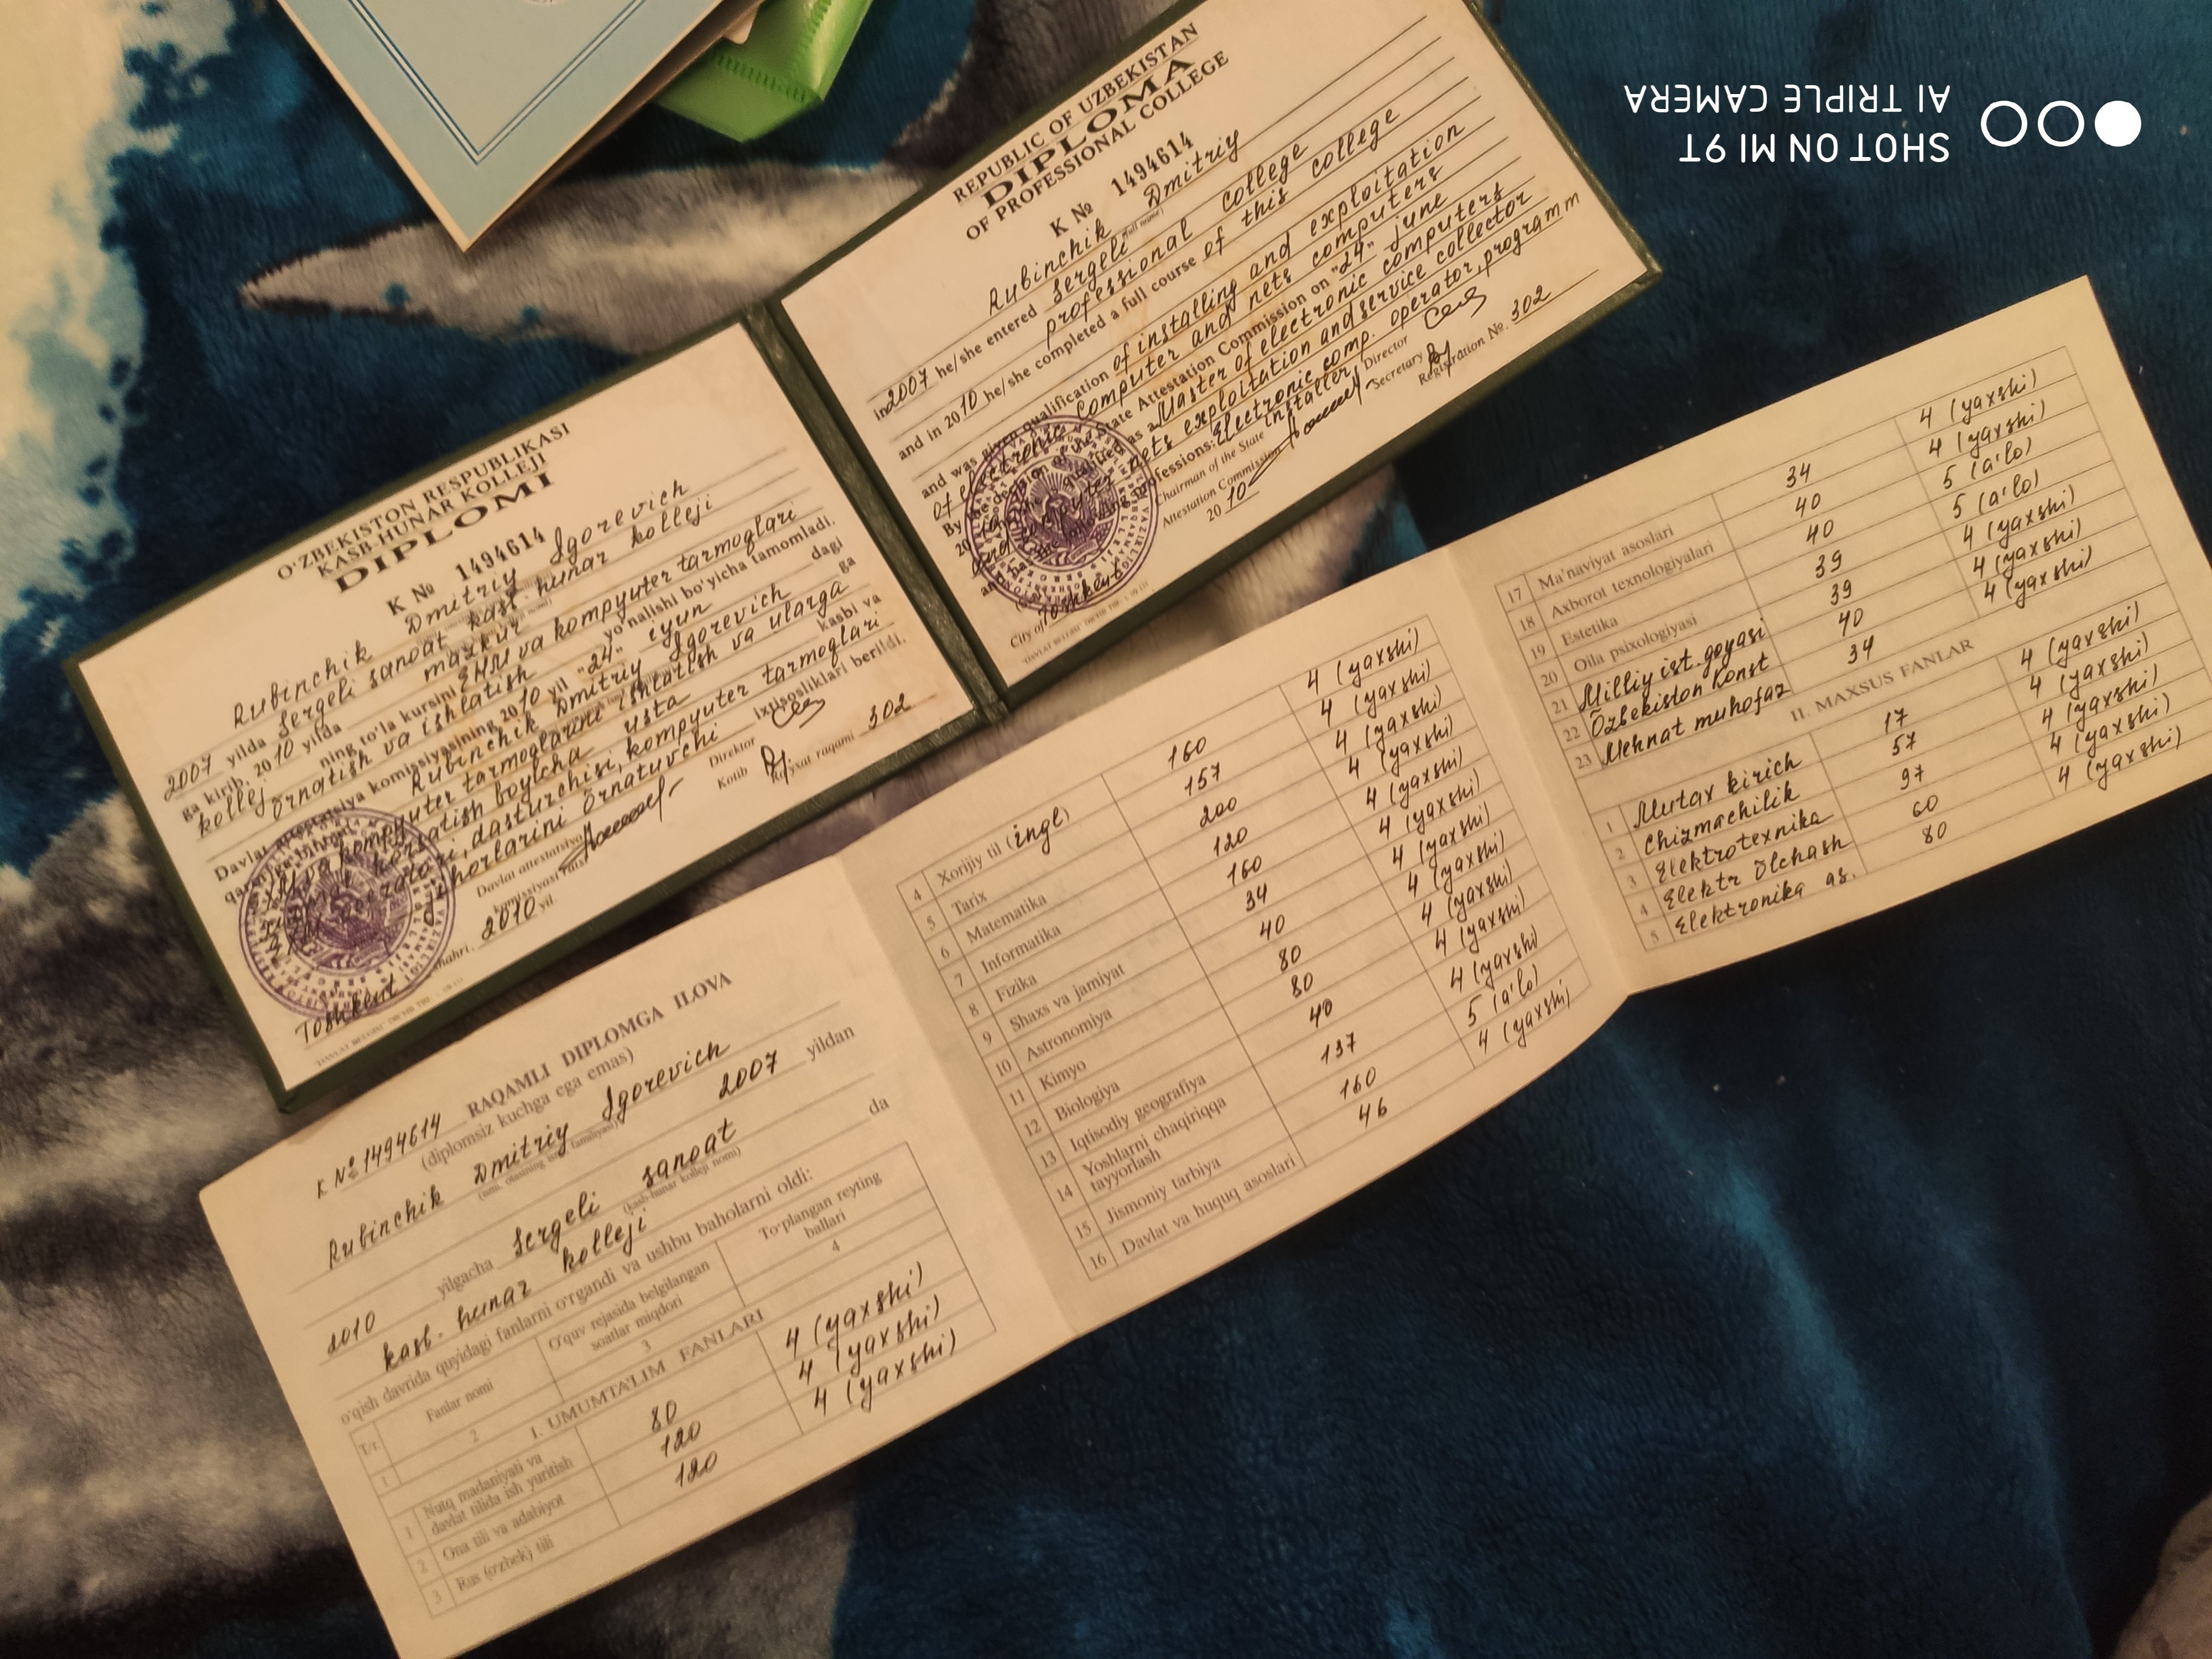 O'ZBEKISTON RESPUBLIKASI
KASB-HUNAR KOLLEJI
DIPLOMI
K № 1494614
Rubinchik Dmitriy Igorevich
2007 yilda Sergeli sanoat kasb-hunar kolleji
ga kirib, 2010 yilda mazkur
kollej ning to'la kursini EHM va kompyuter tarmoqlari
o'rnatish va ishlatish yo'nalishi bo'yicha tamomladi.
Davlat attestatsiya komissiyasining 2010 yil "24" iyun dagi
Rubinchik Dmitriy Igorevich ga
EHM va kompyuter tarmoqlarini ishlatish va ularga
xizmat ko'rsatish boyicha usta kasbi va
operatori, dasturchisi, kompyuter tarmoqlari
o'rnatuvchi ixtisosliklari berildi.
Davlat attestatsiya
komissiyasi raisi
Direktor
Kotib
Ro'yxat raqami 302
Toshkent shahri, 2010 yil
REPUBLIC OF UZBEKISTAN
DIPLOMA
OF PROFESSIONAL COLLEGE
K № 1494614
Rubinchik Dmitriy
(full name)
in 2007 he/she entered Sergeli
professional college
and in 2010 he/she completed a full course of this college
and was given qualification of installing and exploitation
of electronic computer and nets computers
By the decision of the State Attestation Commission on "24" june
2010 he/she qualified as a Master of electronic computers
and computer nets exploitation and service collector
and the following professions: Electronic comp. operator, programm
installer
Chairman of the State
Attestation Commission
Director
Secretary
Registration No. 302
City of Toshkent 2010
K № 1494614 RAQAMLI DIPLOMGA ILOVA
(diplomsiz kuchga ega emas)
Rubinchik Dmitriy Igorevich
2007 yildan
2010 yilgacha Sergeli sanoat
(kasb-hunar kolleji nomi)
kasb-hunar kolleji da
o'qish davrida quyidagi fanlarni o'rgandi va ushbu baholarni oldi:
T/r. Fanlar nomi O'quv rejasida belgilangan soatlar miqdori To'plangan reyting ballari
1 2 3 4
I. UMUMTA'LIM FANLARI
1 Nutq madaniyati va davlat tilida ish yuritish 80 4 (yaxshi)
2 Ona tili va adabiyot 120 4 (yaxshi)
3 Rus (o'zbek) tili 120 4 (yaxshi)
4 Xorijiy til (ingl) 160 4 (yaxshi)
5 Tarix 157 4 (yaxshi)
6 Matematika 200 4 (yaxshi)
7 Informatika 120 4 (yaxshi)
8 Fizika 160 4 (yaxshi)
9 Shaxs va jamiyat 34 4 (yaxshi)
10 Astronomiya 40 4 (yaxshi)
11 Kimyo 80 4 (yaxshi)
12 Biologiya 80 4 (yaxshi)
13 Iqtisodiy geografiya 40 4 (yaxshi)
14 Yoshlarni chaqiriqqa tayyorlash 137 4 (yaxshi)
15 Jismoniy tarbiya 160 5 (a'lo)
16 Davlat va huquq asoslari 46 4 (yaxshi)
17 Ma'naviyat asoslari 34 4 (yaxshi)
18 Axborot texnologiyalari 40 4 (yaxshi)
19 Estetika 40 5 (a'lo)
20 Oila psixologiyasi 39 5 (a'lo)
21 Milliy ist. goyasi 39 4 (yaxshi)
22 Õzbekiston Konst 40 4 (yaxshi)
23 Mehnat muhofaz 34 4 (yaxshi)
II. MAXSUS FANLAR
1 Mutax kirich 17 4 (yaxshi)
2 Chizmachilik 57 4 (yaxshi)
3 Elektrotexnika 97 4 (yaxshi)
4 Elektr Õlchash 60 4 (yaxshi)
5 Elektronika as. 80 4 (yaxshi)
SHOT ON MI 9T
AI TRIPLE CAMERA